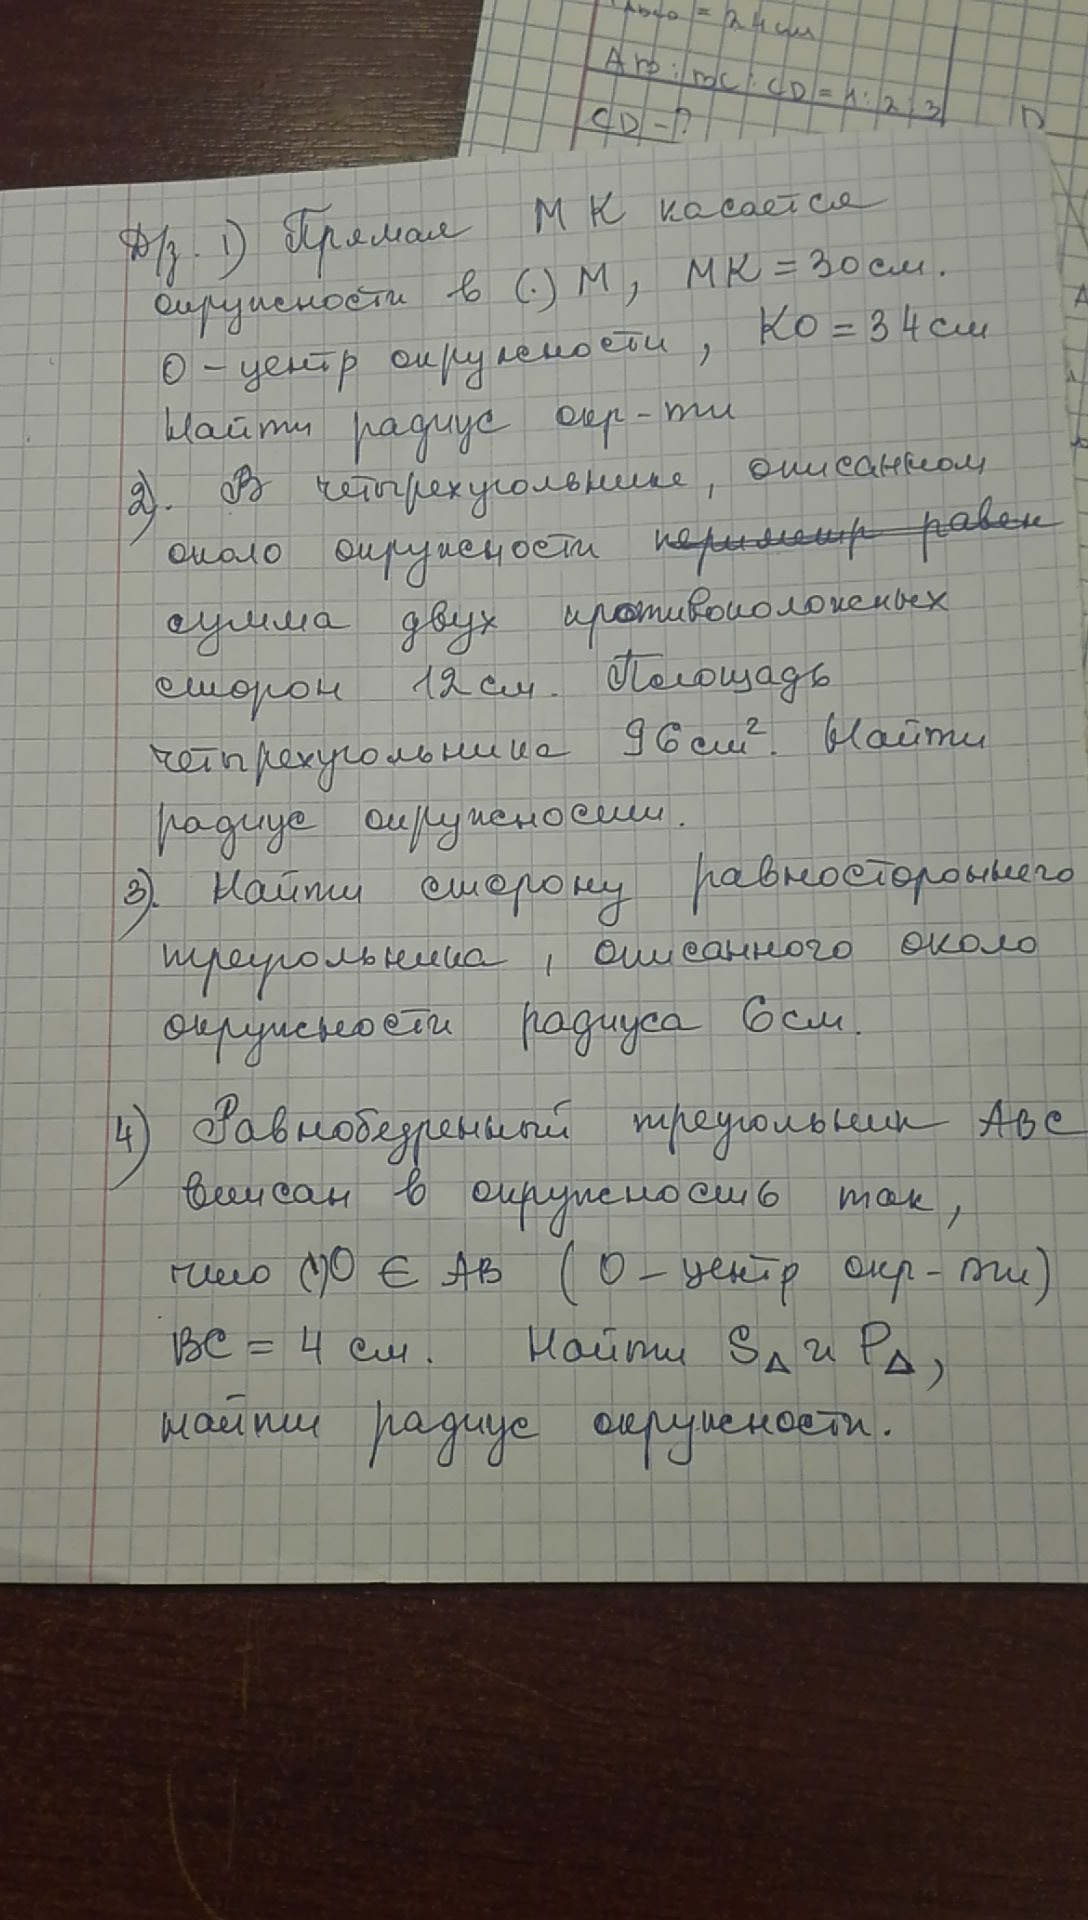 = 24 см
AB : BC : CD = 1 : 2 : 3
CD - ?
D
Д/з. 1) Прямая МК касается
окружности в (.) М, МК = 30 см.
О - центр окружности, КО = 34 см
Найти радиус окр-ти
2). В четырехугольнике, описанном
около окружности периметр равен
сумма двух противоположных
сторон 12 см. Площадь
четырехугольника 96 см². Найти
радиус окружности.
3). Найти сторону равностороннего
треугольника, описанного около
окружности радиуса 6 см.
4) Равнобедренный треугольник АВС
вписан в окружность так,
что (.) О ∈ АВ (О - центр окр-ти)
ВС = 4 см. Найти S△ и P△,
найти радиус окружности.